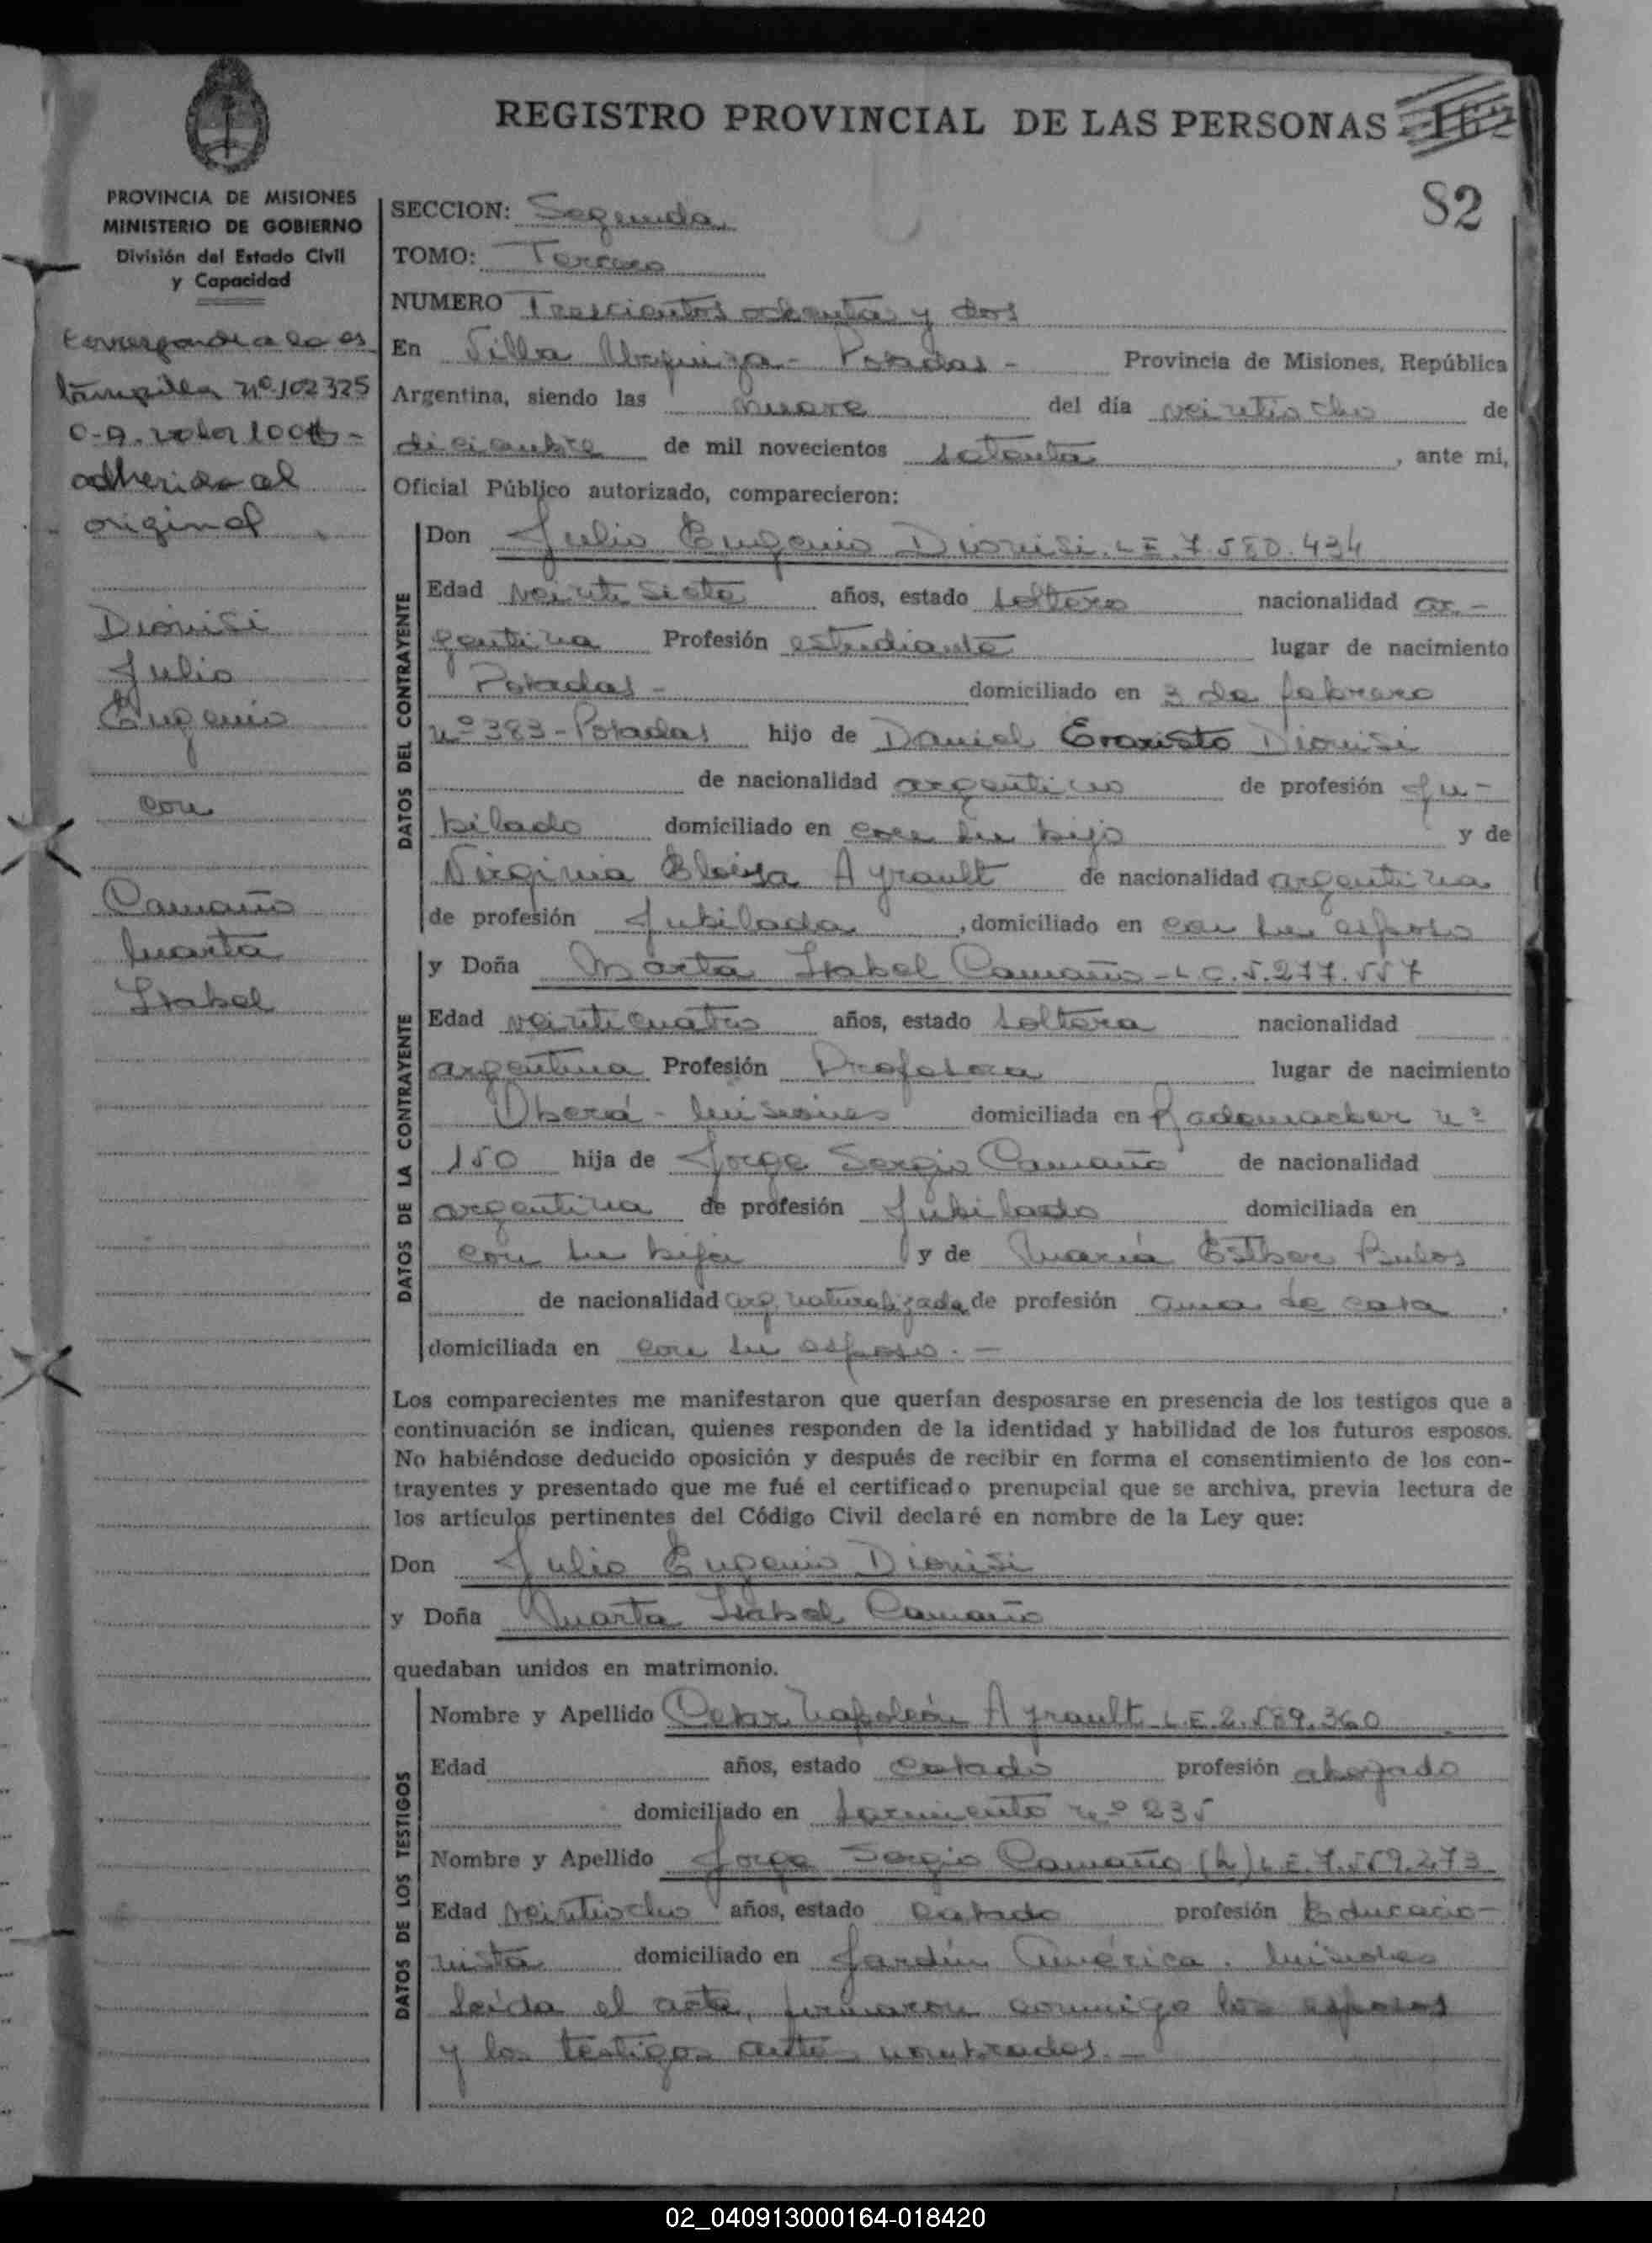 REGISTRO PROVINCIAL DE LAS PERSONAS 162
82
PROVINCIA DE MISIONES
MINISTERIO DE GOBIERNO
División del Estado Civil
y Capacidad
corresponde a la es
tampilla nº 102325
O-A. valor 100$-
adherida al
original
Dionisi
Julio
Eugenio
con
Camaño
Marta
Isabel
SECCION: Segunda
TOMO: Tercero
NUMERO Trescientos ochenta y dos
En Villa Urquiza - Posadas - Provincia de Misiones, República
Argentina, siendo las nueve del día veintiocho de
diciembre de mil novecientos setenta, ante mi,
Oficial Público autorizado, comparecieron:
DATOS DEL CONTRAYENTE
Don Julio Eugenio Dionisi. LE 7.580.434
Edad veinte siete años, estado soltero nacionalidad ar-
gentina Profesión estudiante lugar de nacimiento
Posadas - domiciliado en 3 de febrero
nº 383 - Posadas hijo de Daniel Evaristo Dionisi
de nacionalidad argentino de profesión Ju-
bilado domiciliado en con su hijo y de
Virginia Eloisa Ayrault de nacionalidad argentina
de profesión Jubilada, domiciliado en con su esposo
DATOS DE LA CONTRAYENTE
y Doña Marta Isabel Camaño - L C. 5.277.557
Edad veinticuatro años, estado soltera nacionalidad
argentina Profesión Profesora lugar de nacimiento
Oberá - Misiones domiciliada en Rademacher nº
150 hija de Jorge Sergio Camaño de nacionalidad
argentina de profesión Jubilado domiciliada en
con su hija y de María Esther Bulos
de nacionalidad arg. naturalizada de profesión ama de casa.
domiciliada en con su esposo. -
Los comparecientes me manifestaron que querían desposarse en presencia de los testigos que a
continuación se indican, quienes responden de la identidad y habilidad de los futuros esposos.
No habiéndose deducido oposición y después de recibir en forma el consentimiento de los con-
trayentes y presentado que me fué el certificado prenupcial que se archiva, previa lectura de
los artículos pertinentes del Código Civil declaré en nombre de la Ley que:
Don Julio Eugenio Dionisi
y Doña Marta Isabel Camaño
quedaban unidos en matrimonio.
DATOS DE LOS TESTIGOS
Nombre y Apellido Cesar Napoleón Ayrault L.E. 2.589.360
Edad años, estado casado profesión abogado
domiciliado en Sarmiento nº 235
Nombre y Apellido Jorge Sergio Camaño (h) L.E. 7.559.273
Edad veintiocho años, estado casado profesión Educacio-
nista domiciliado en Jardín América. Misiones
Leída el acta, firmaron conmigo los esposos
y los testigos antes nombrados. -
02_040913000164-018420